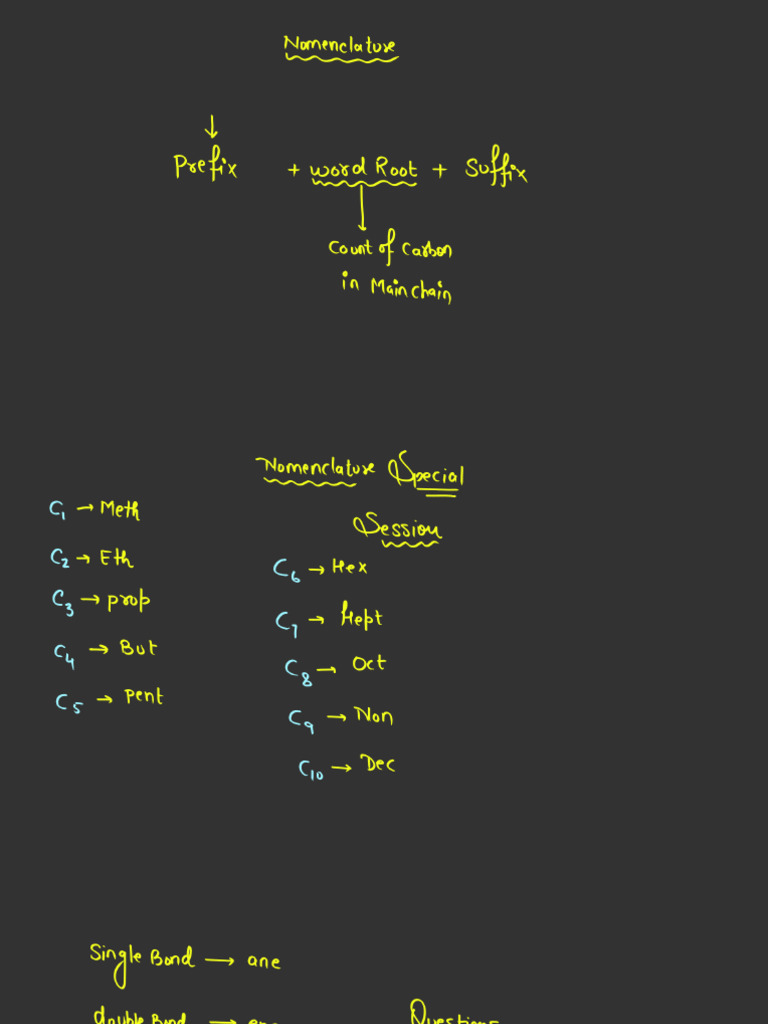 Nomenclature
↓
Prefix + word Root + Suffix
↓
Count of Carbon
in Main chain
Nomenclature Special
Session
C₁ → Meth
C₂ → Eth
C₃ → prop
C₄ → But
C₅ → Pent
C₆ → Hex
C₇ → Hept
C₈ → Oct
C₉ → Non
C₁₀ → Dec
Single Bond → ane
double Bond → ene
Questions